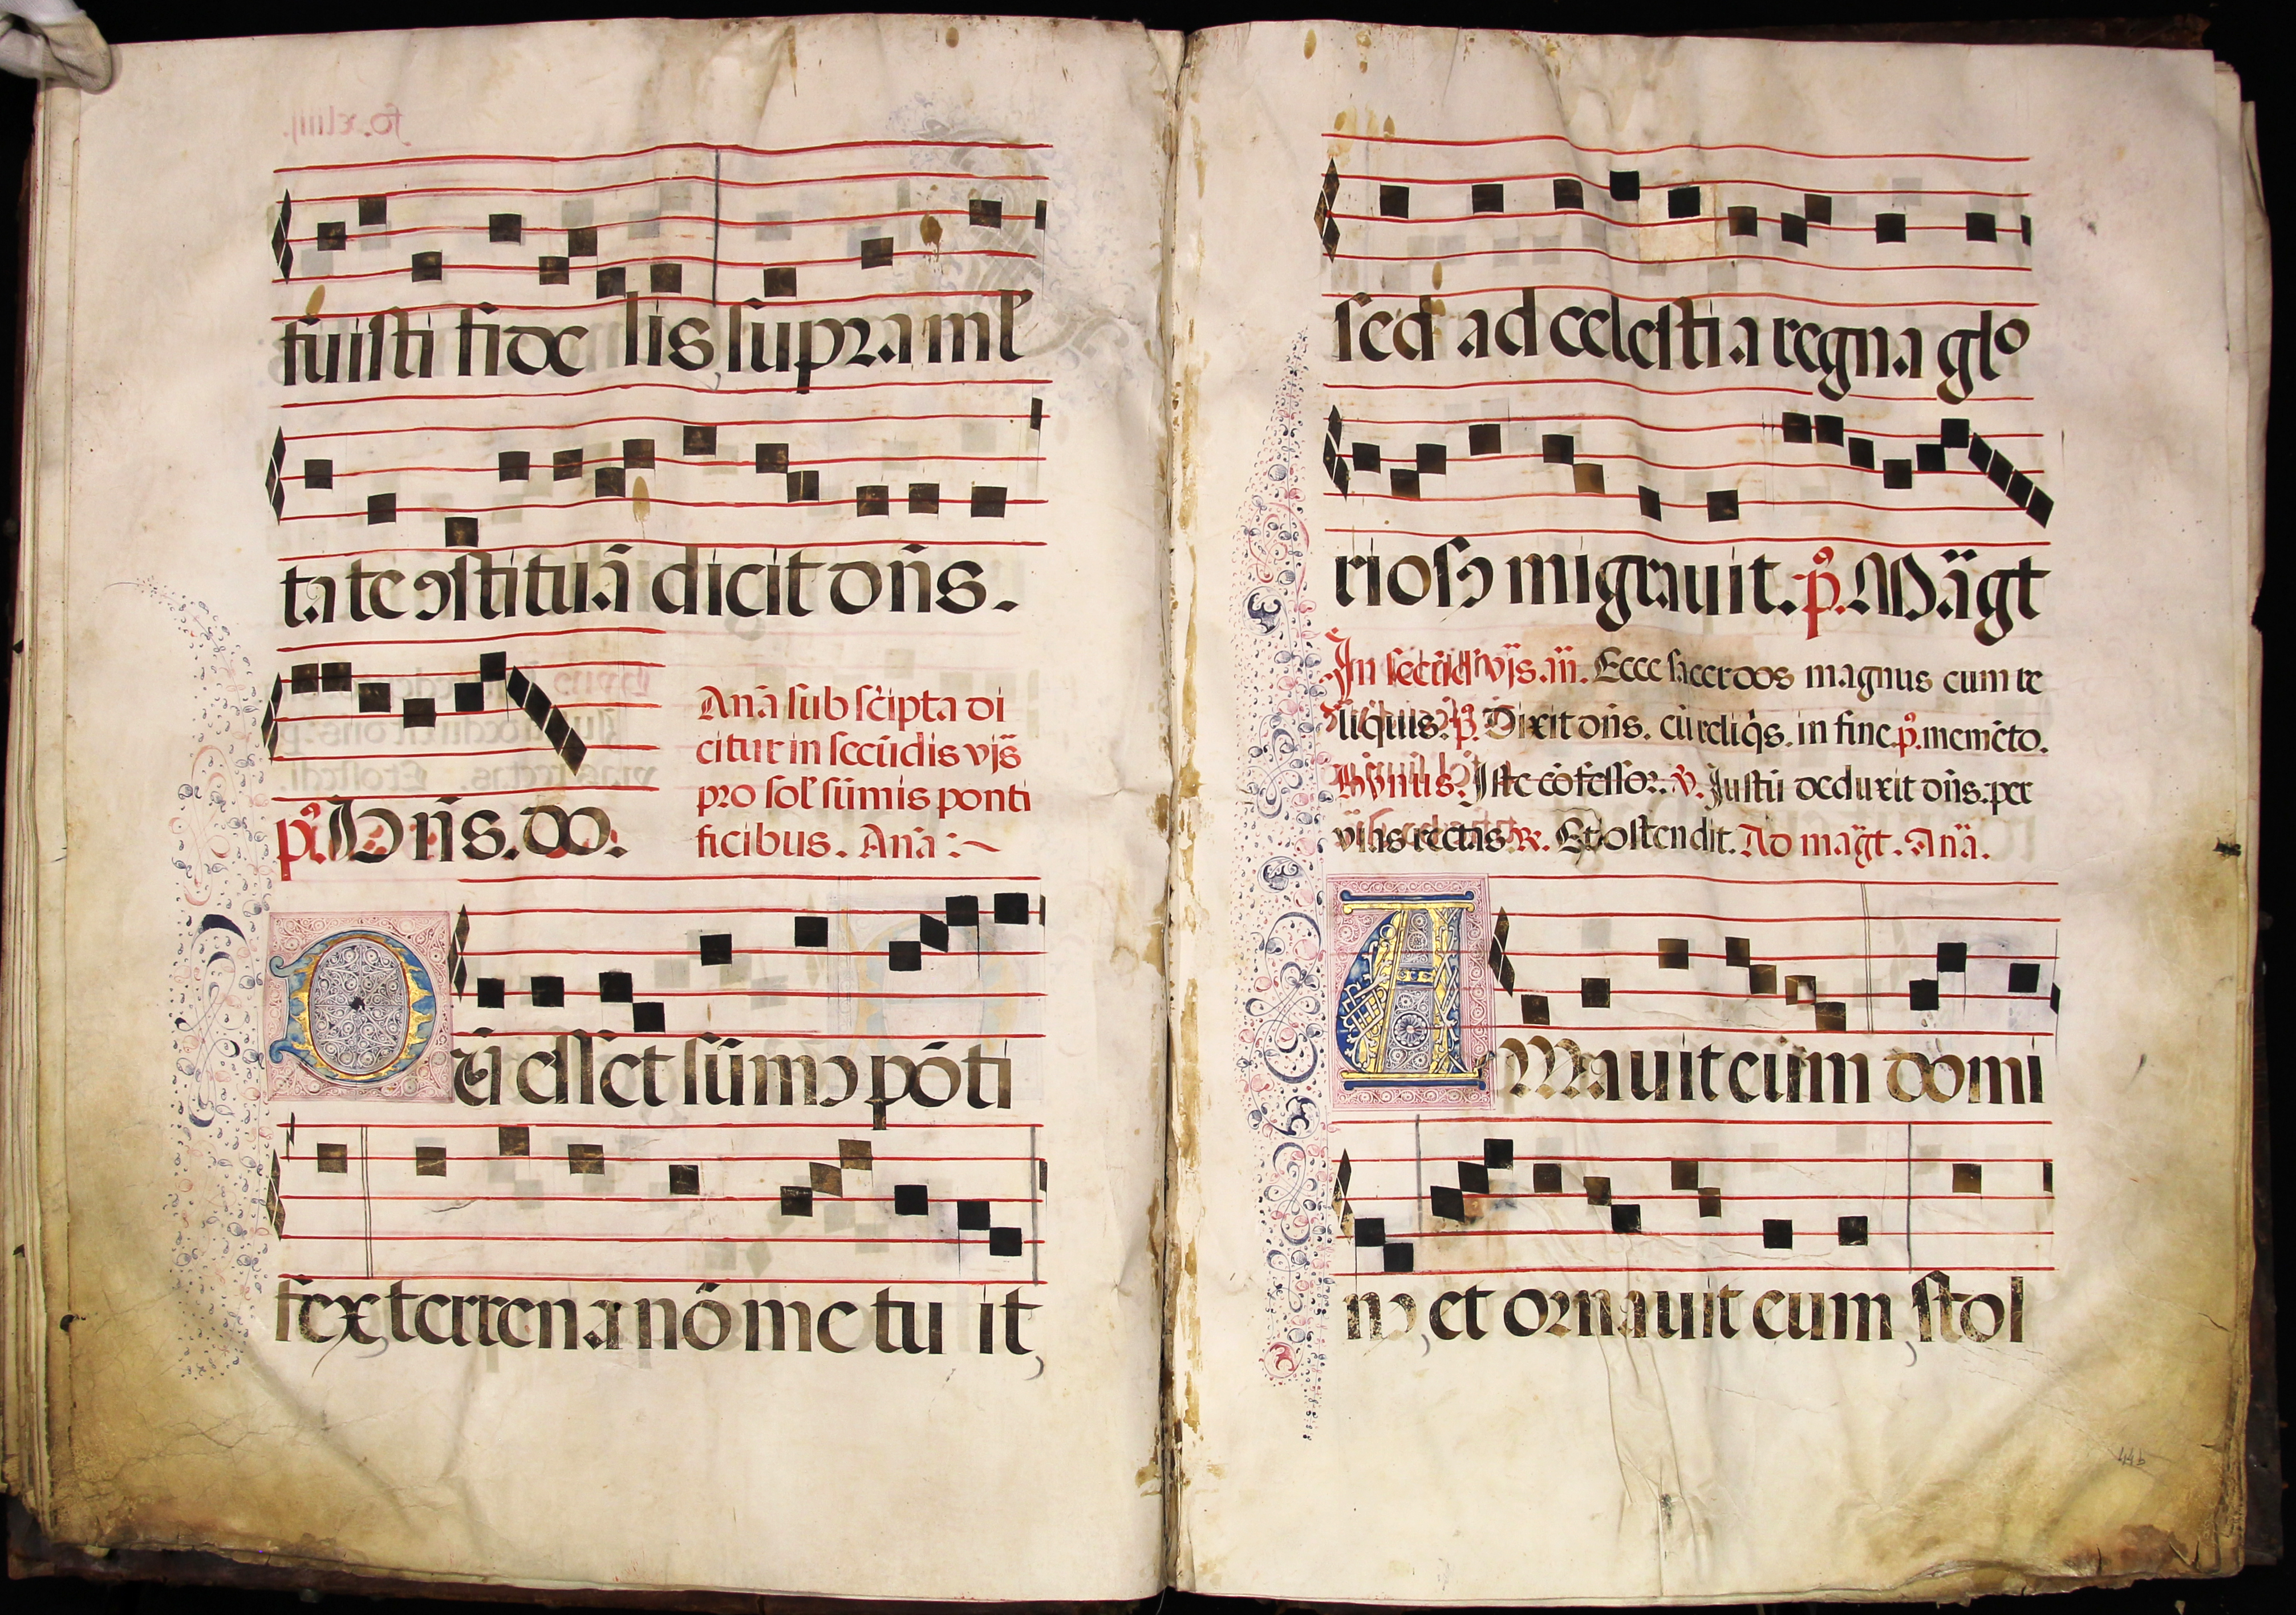 fuisti fide lis supra ml̃
ta te ↄstituā dicit dñs.
p̃º. Dñs. do.
Anā sub sc̃ipta di
citur in secūdis vjs̃
pro sol̃ sūmis ponti
ficibus. Anā :~
D ũ esset sūmↄ pōti
fex terrena nō me tu it,
sed ad celesti a regna glo
riosↄ migrauit. p̃º. Mãgt
In secūdis vjs̃. añ. Ecce sacerdos magnus cum re
liquis. p̃º. Dixit dñs. cū reliq̃s. in fine p̃º. memēto.
Hymus. Iste cōfessor. v. Justū deduxit dñs: per
vias rectas. R. Et ostendit. Ad mãgt. Anã.
A Mauit eūm domi
nↄ, et ornauit eum, stol
44b